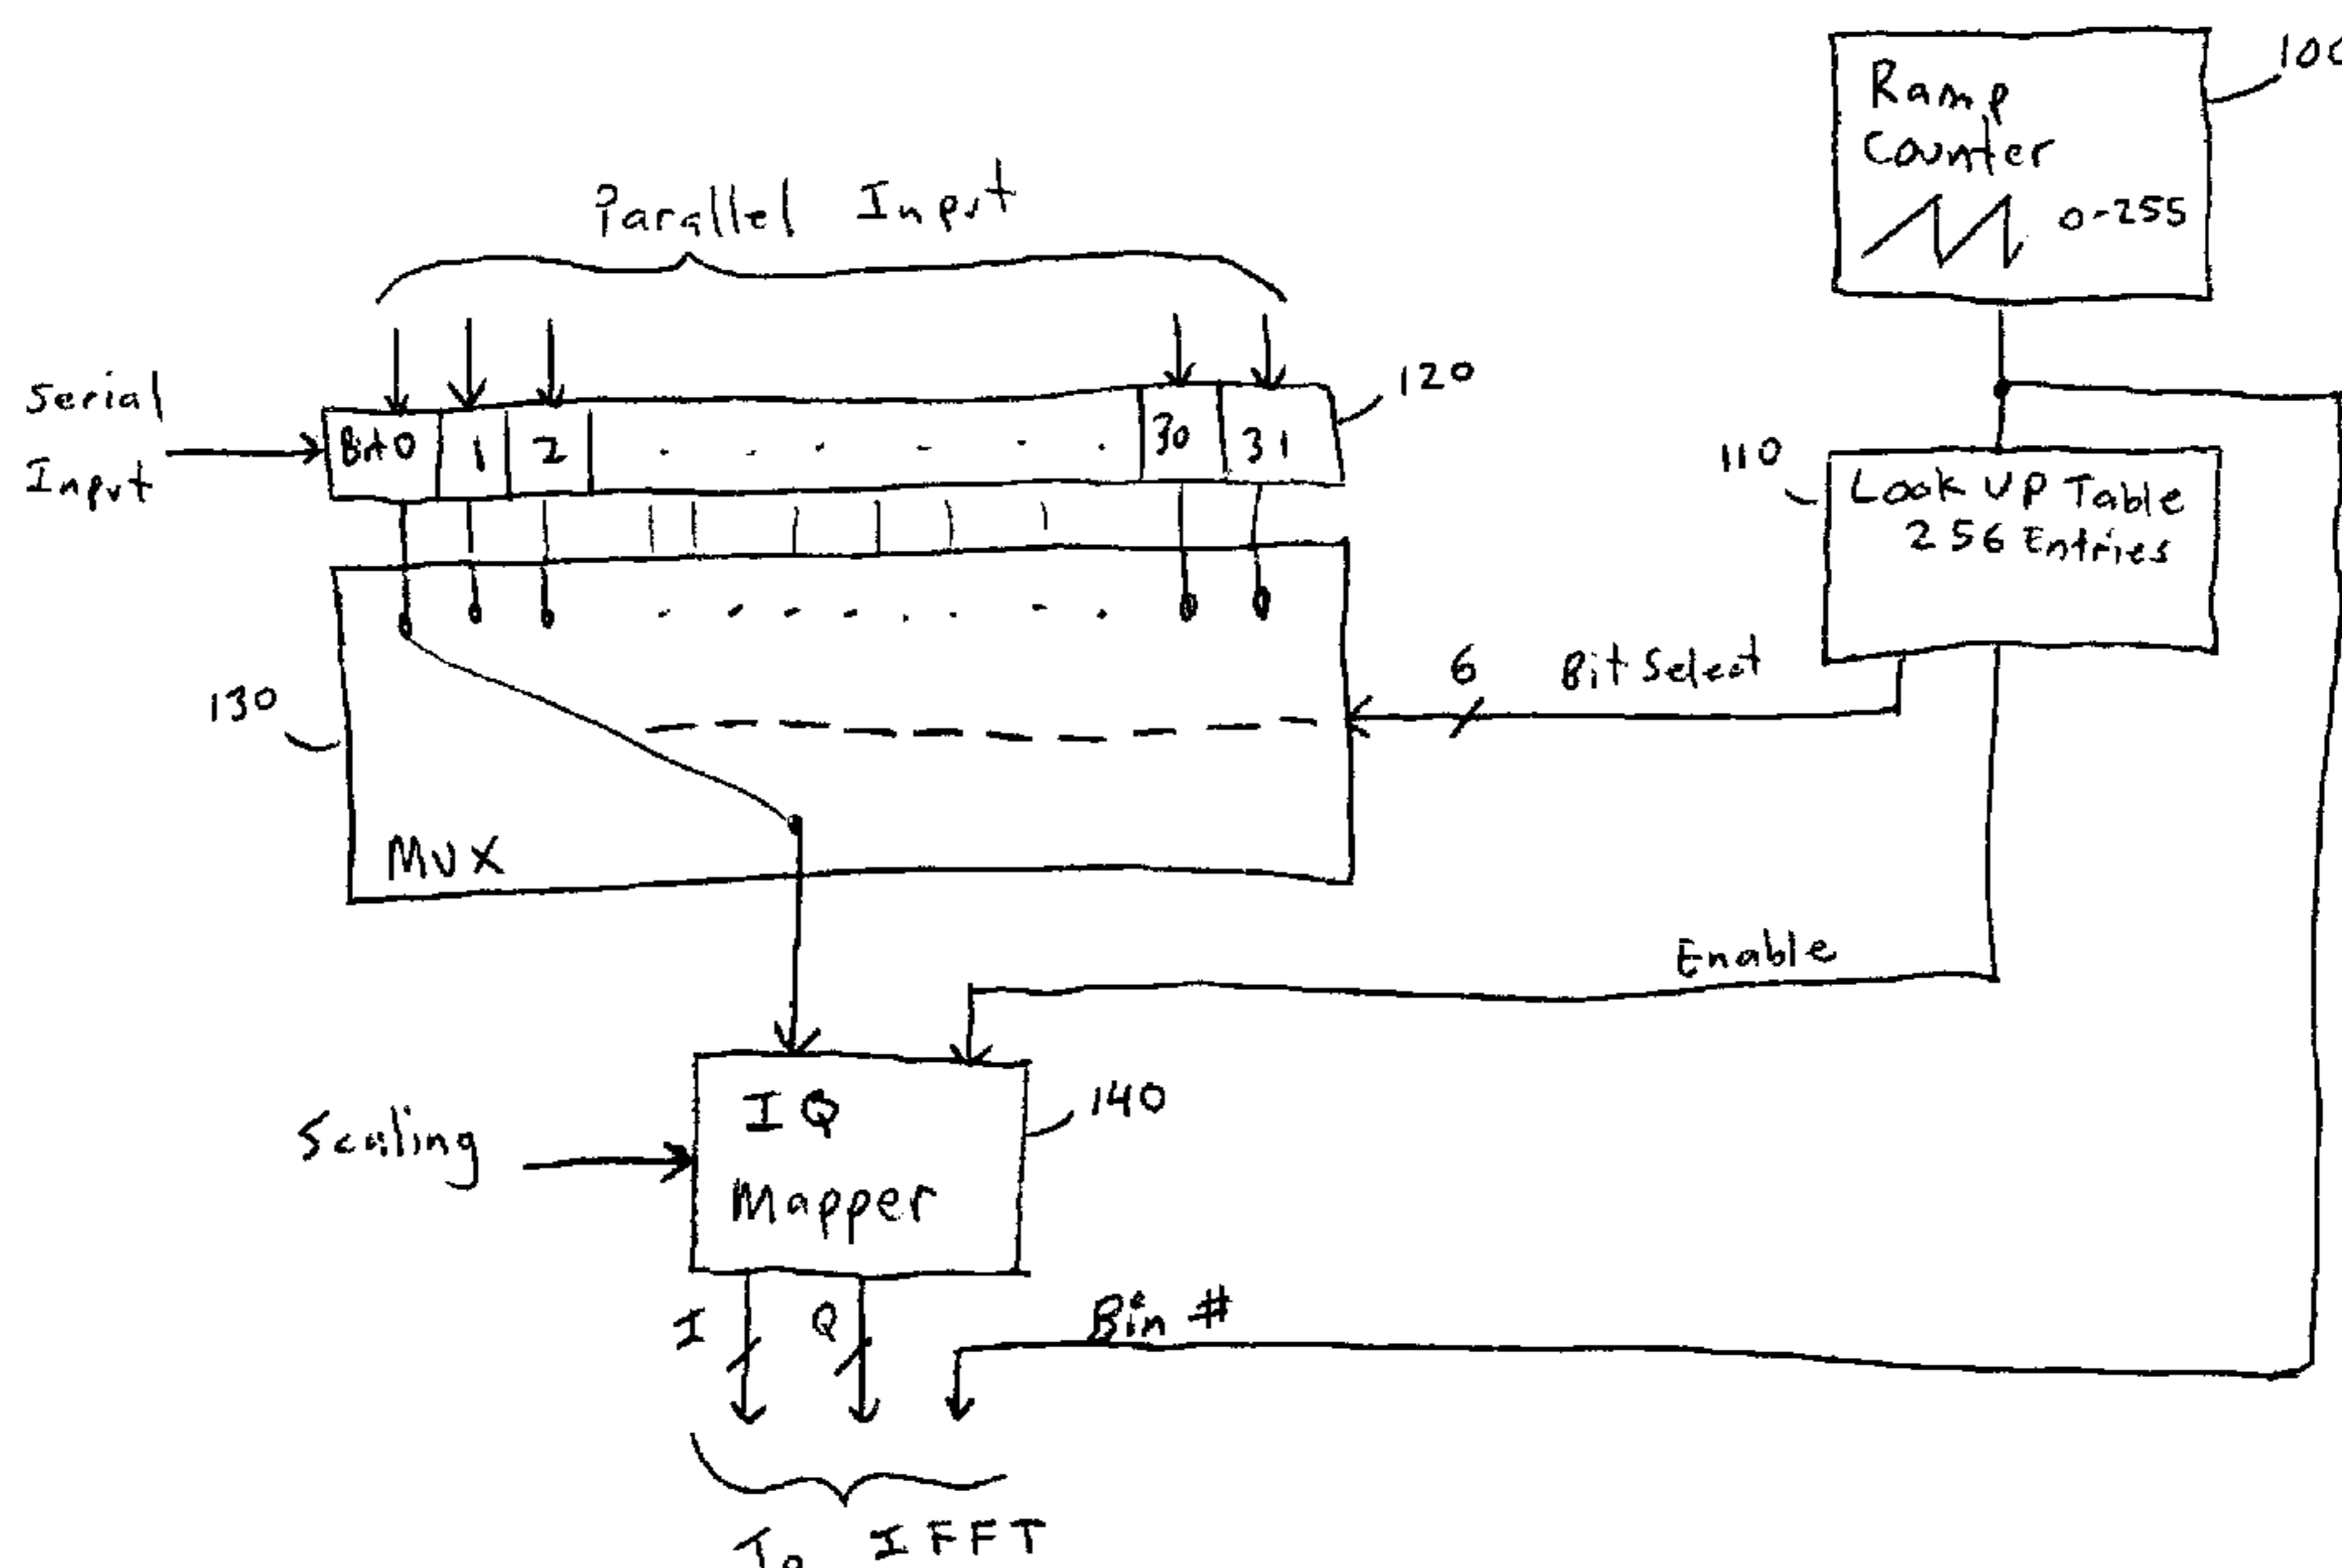 100
Ramp
Counter
0-255
Parallel Input
Serial
Input
Bit 0 1 2 . . . . . . 30 31
120
110
Look UP Table
256 Entries
6 Bit Select
130
MUX
Enable
IQ
Mapper
140
Scaling
I Q
Bin #
To IFFT